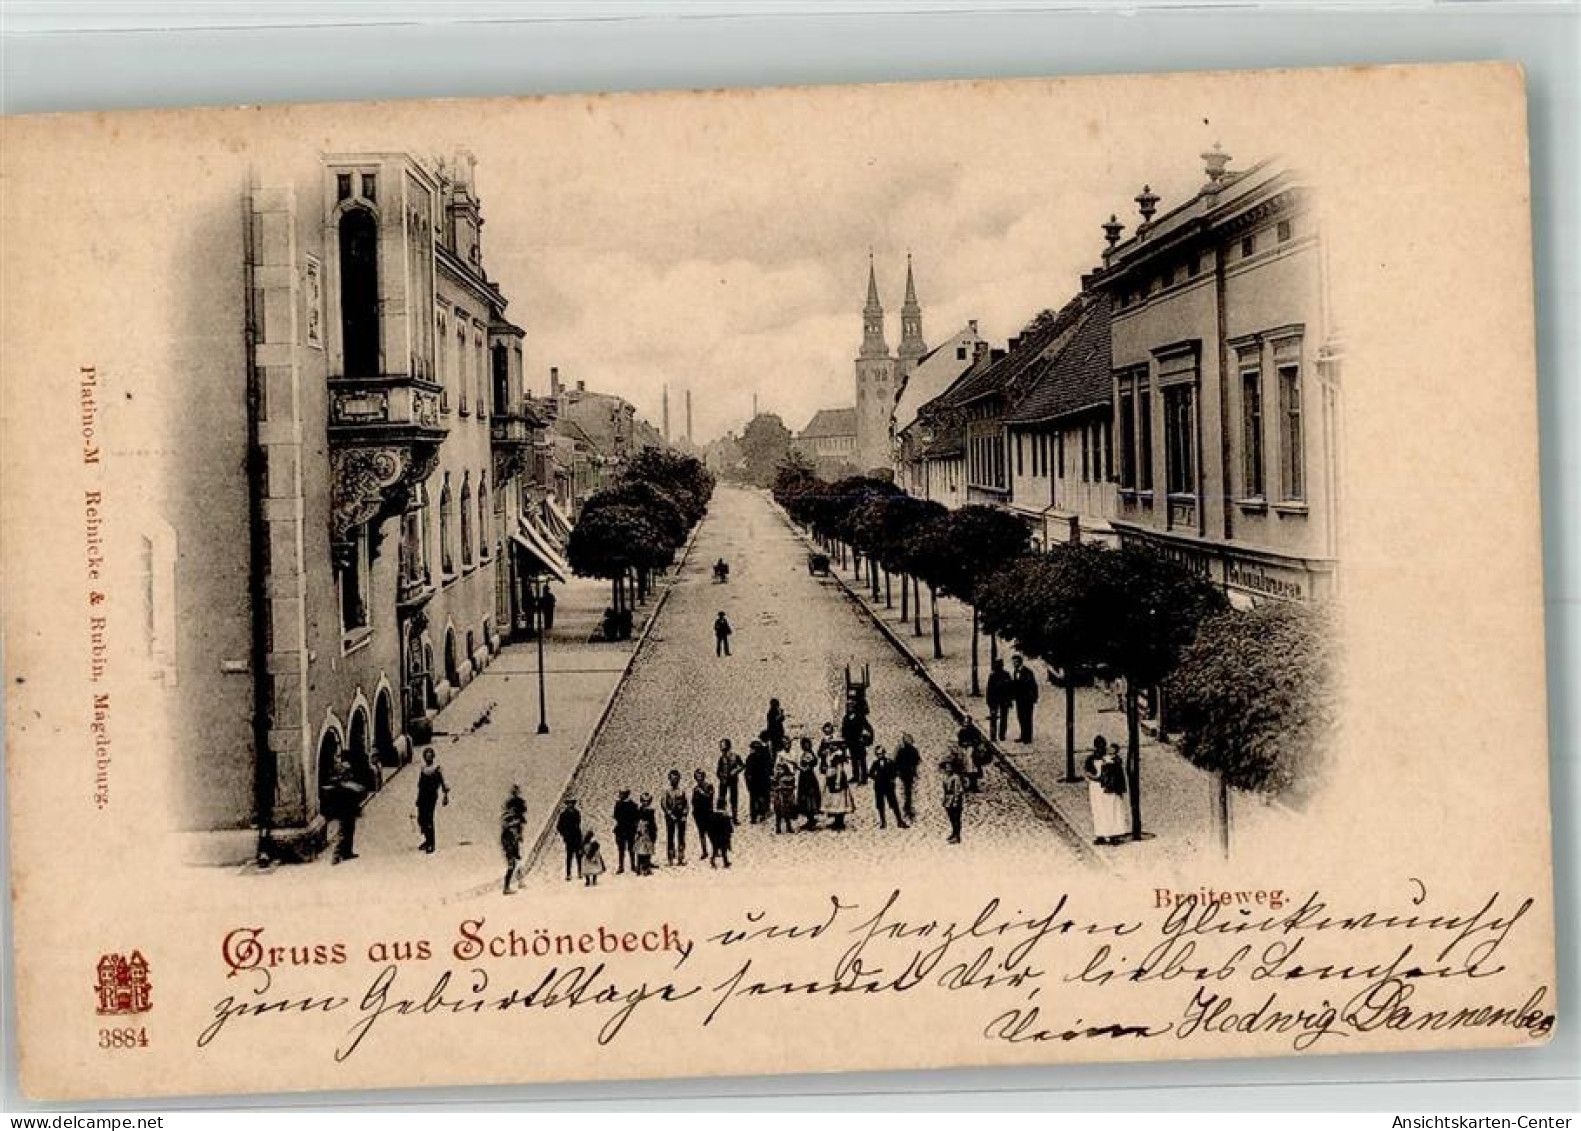 Platino-M Reinicke & Rubin, Magdeburg.
Breiteweg.
Gruss aus Schönebeck, und herzlichen Glückwunsch
zum Geburtstage sendet Dir, liebes Lenchen
Deine Hedwig Dannenberg
3884
oldthing
Ansichtskarten-Center